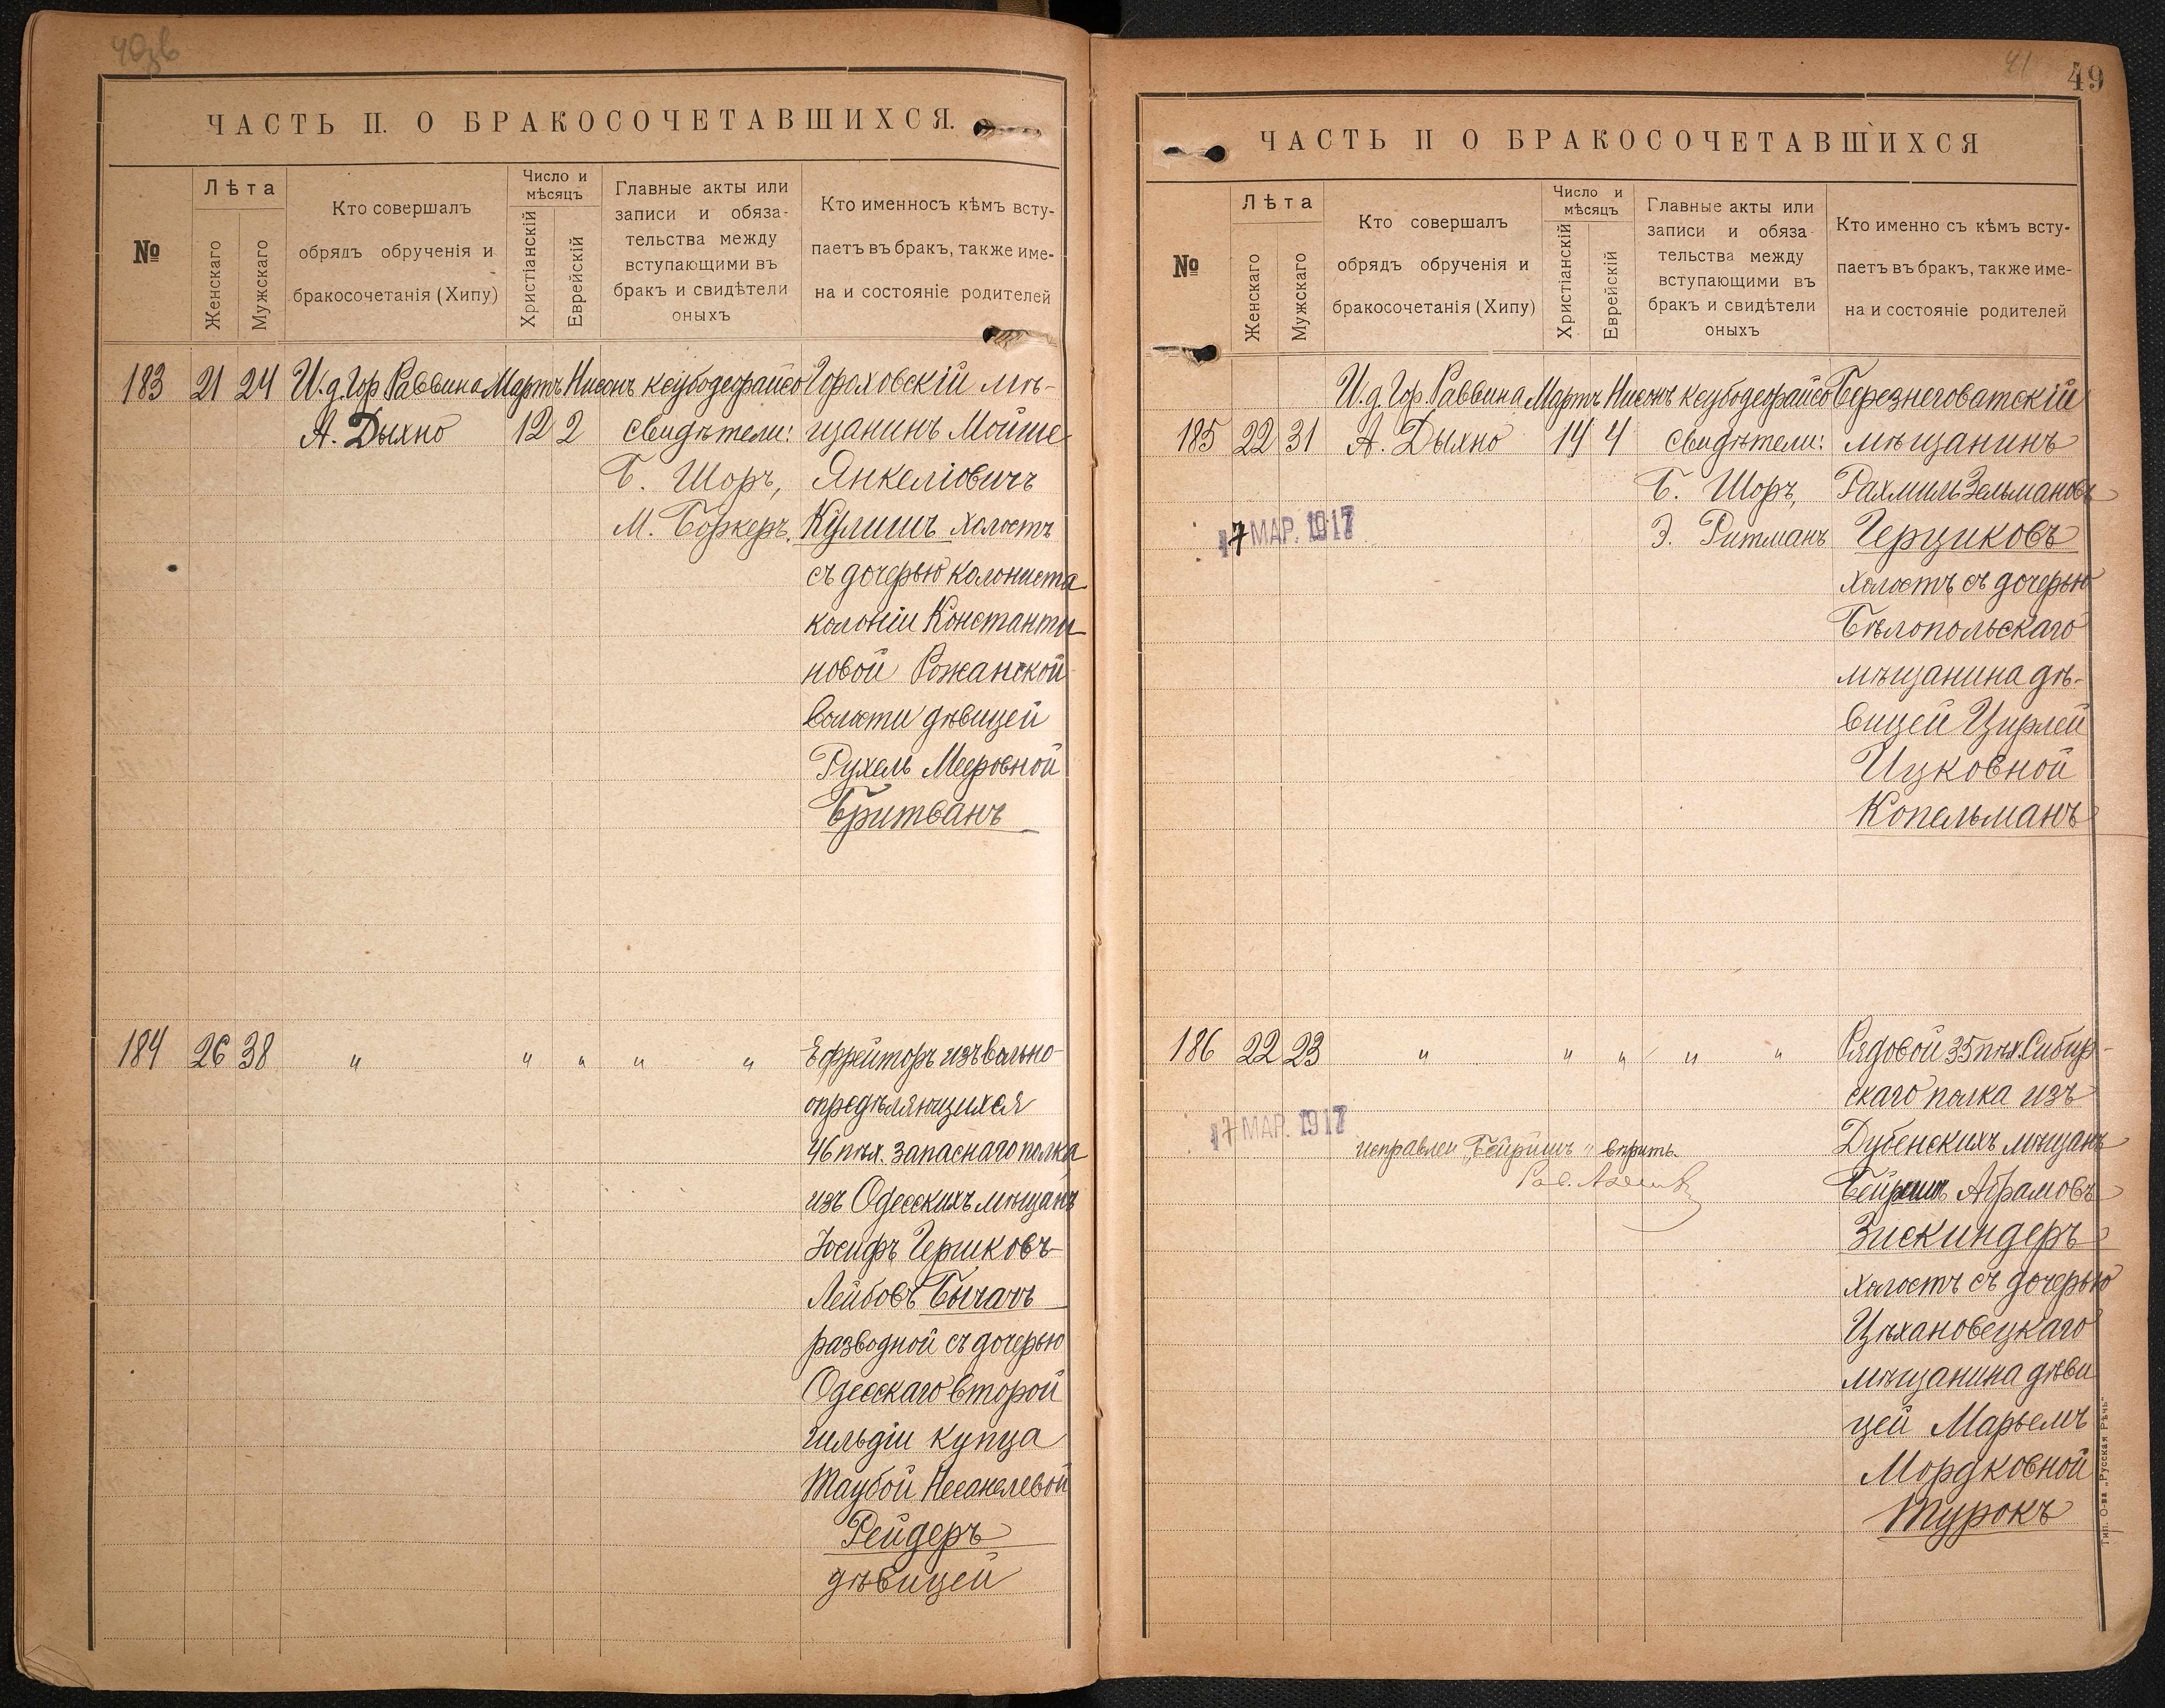 40 зв
ЧАСТЬ II. О БРАКОСОЧЕТАВШИХСЯ.
№
Лѣта
Женскаго
Мужскаго
Кто совершалъ
обрядъ обрученія и
бракосочетанія (Хипу)
Число и
мѣсяцъ
Христіанскій
Еврейскій
Главные акты или
записи и обяза-
тельства между
вступающими въ
бракъ и свидѣтели
оныхъ
Кто именносъ кѣмъ всту-
паетъ въ бракъ, также име-
на и состояніе родителей
183 21 24 И.д. Гор Раввина Мартъ Нисонъ ксубодеорайсо Гороховскій мѣ-
А. Дыхно 12 2 свидѣтели: щанинъ Мойше
Б. Шоръ, Янкеліовичъ
М. Боркеръ. Кулишъ холостъ
съ дочерью колониста
колоніи Константи
новой Рожанской
волости дѣвицей
Рухель Мееровной
Бритванъ
184 26 38 " " " " " Ефрейторъ изъ вольно-
опредѣляющихся
46 пѣх. запаснаго полка
изъ Одесскихъ мѣщанъ
Іосифъ Гершковъ-
Лейбовъ Бычачъ
разводной съ дочерью
Одесскаго второй
гильдіи купца
Таубой Несанелевой
Рейдеръ
дѣвицей
41
49
ЧАСТЬ II О БРАКОСОЧЕТАВШИХСЯ
№
Лѣта
Женскаго
Мужскаго
Кто совершалъ
обрядъ обрученія и
бракосочетанія (Хипу)
Число и
мѣсяцъ
Христіанскій
Еврейскій
Главные акты или
записи и обяза
тельства между
вступающими въ
бракъ и свидѣтели
оныхъ
Кто именно съ кѣмъ всту-
паетъ въ бракъ, также име-
на и состояніе родителей
И.д. Гор. Раввина Мартъ Нисонъ ксубодеорайсо Березнеговатскій
185 22 31 А. Дыхно 14 4 свидѣтели: мѣщанинъ
Б. Шоръ, Рахмиль Зельмановъ
17 МАР. 1917 Э. Ритманъ Герциковъ
холостъ съ дочерью
Бѣлопольскаго
мѣщанина дѣ-
вицей Цирлей
Ицковной
Копельманъ
186 22 23 " " " " " Рядовой 35 пѣх. Сибир-
скаго полка изъ
17 МАР. 1917 исправлен „Бейришъ" вѣрить Дубенскихъ мѣщанъ
Рав. Бейришъ Абрамовъ
Зискиндеръ
холостъ съ дочерью
Цѣхановецкаго
мѣщанина дѣви
цей Марьемъ
Мордковной
Турокъ
Тип. О-ва „Русская Рѣчь"